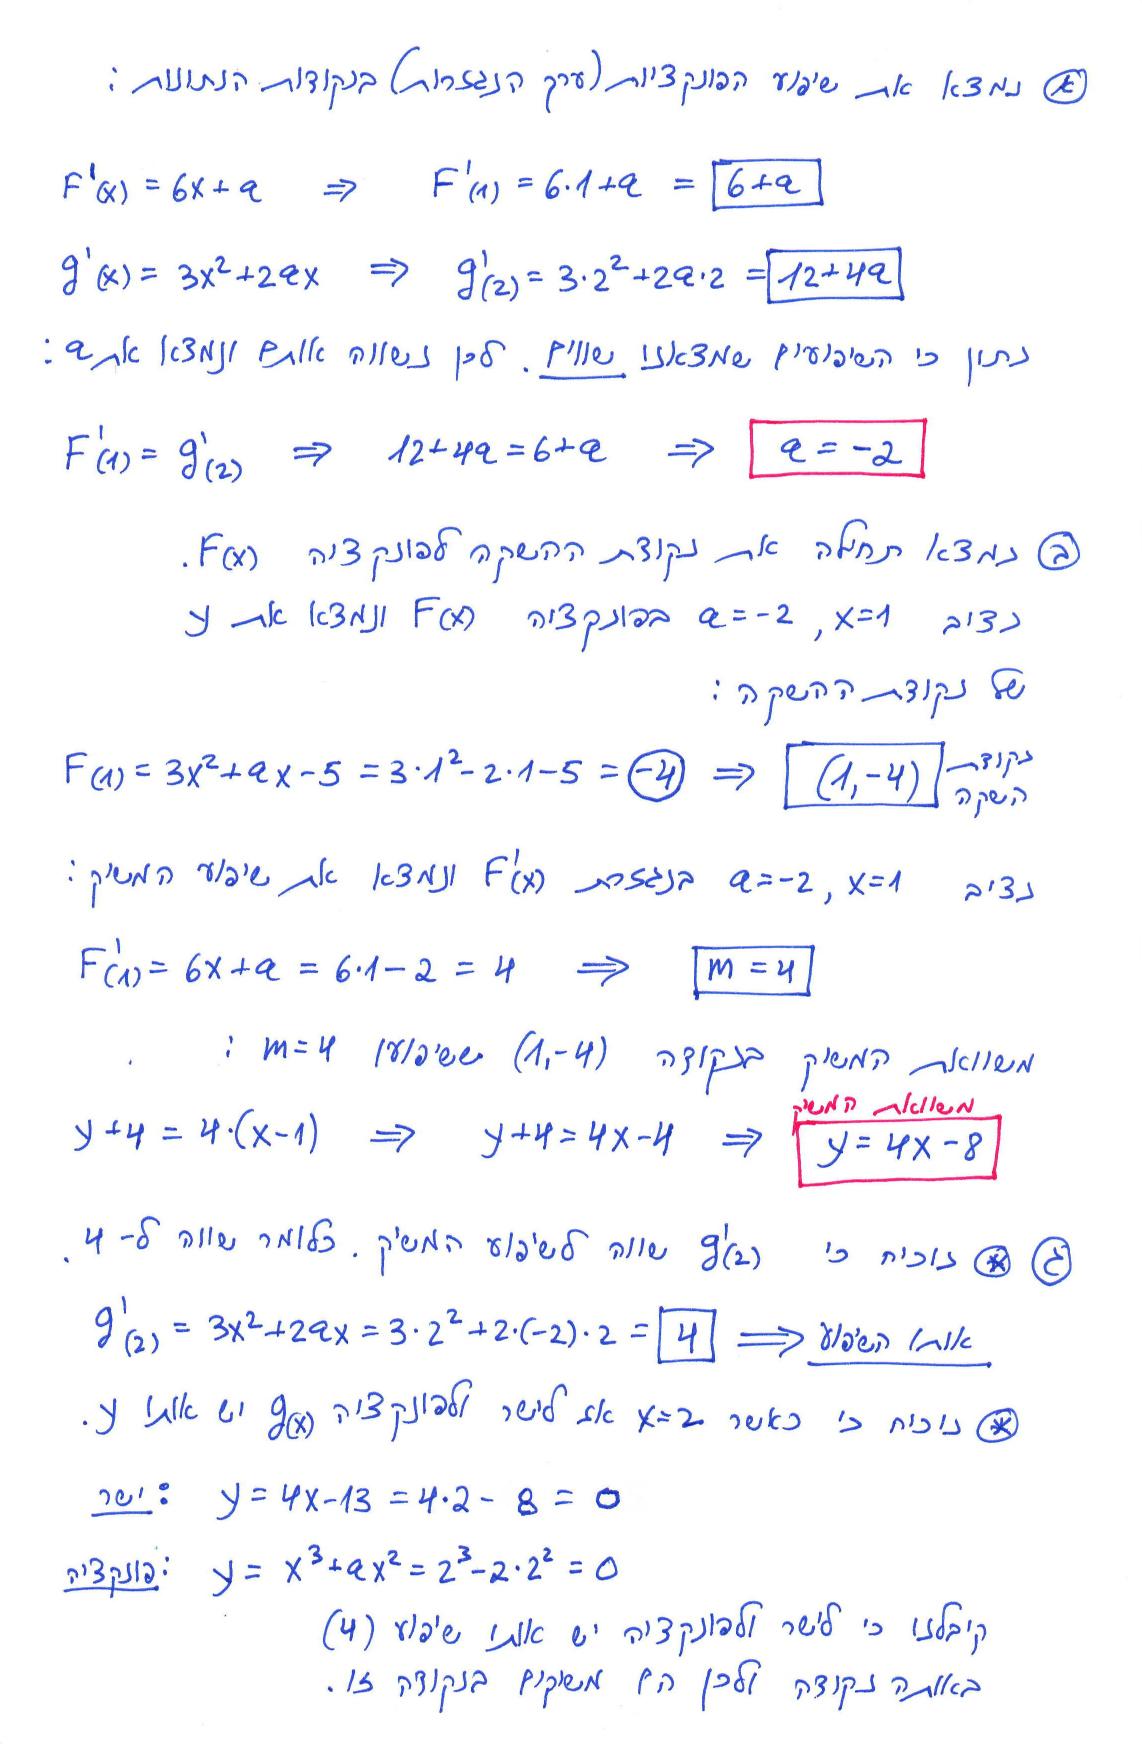 א נמצא את שיפוע הפונקציות (ערך הנגזרות) בנקודות הנתונות :
F'(x) = 6x+a ⇒ F'(1) = 6·1+a = 6+a
g'(x) = 3x²+2ax ⇒ g'(2) = 3·2²+2a·2 = 12+4a
נתון כי השיפועים שמצאנו שווים. לכן נשווה אותם ונמצא את a :
F'(1) = g'(2) ⇒ 12+4a=6+a ⇒ a = -2
ב נמצא תחילה את נקודת ההשקה לפונקציה F(x).
נציב x=1, a=-2 בפונקציה F(x) ונמצא את y
של נקודת ההשקה :
F(1) = 3x²+ax-5 = 3·1²-2·1-5 = -4 ⇒ (1,-4) נקודת השקה
נציב x=1, a=-2 בנגזרת F'(x) ונמצא את שיפוע המשיק :
F'(1) = 6x+a = 6·1-2 = 4 ⇒ m = 4
משוואת המשיק בנקודה (1,-4) ששיפועו m=4 :
משוואת המשיק
y+4 = 4·(x-1) ⇒ y+4=4x-4 ⇒ y = 4x-8
ג * נוכיח כי g'(2) שווה לשיפוע המשיק. כלומר שווה ל-4.
g'(2) = 3x²+2ax = 3·2²+2·(-2)·2 = 4 ⇒ אותו השיפוע
* נוכיח כי כאשר x=2 אז לישר ולפונקציה g(x) יש אותו y.
ישר: y = 4x-13 = 4·2-8 = 0
פונקציה: y = x³+ax² = 2³-2·2² = 0
קיבלנו כי לישר ולפונקציה יש אותו שיפוע (4)
באותה נקודה ולכן הם משיקים בנקודה זו.